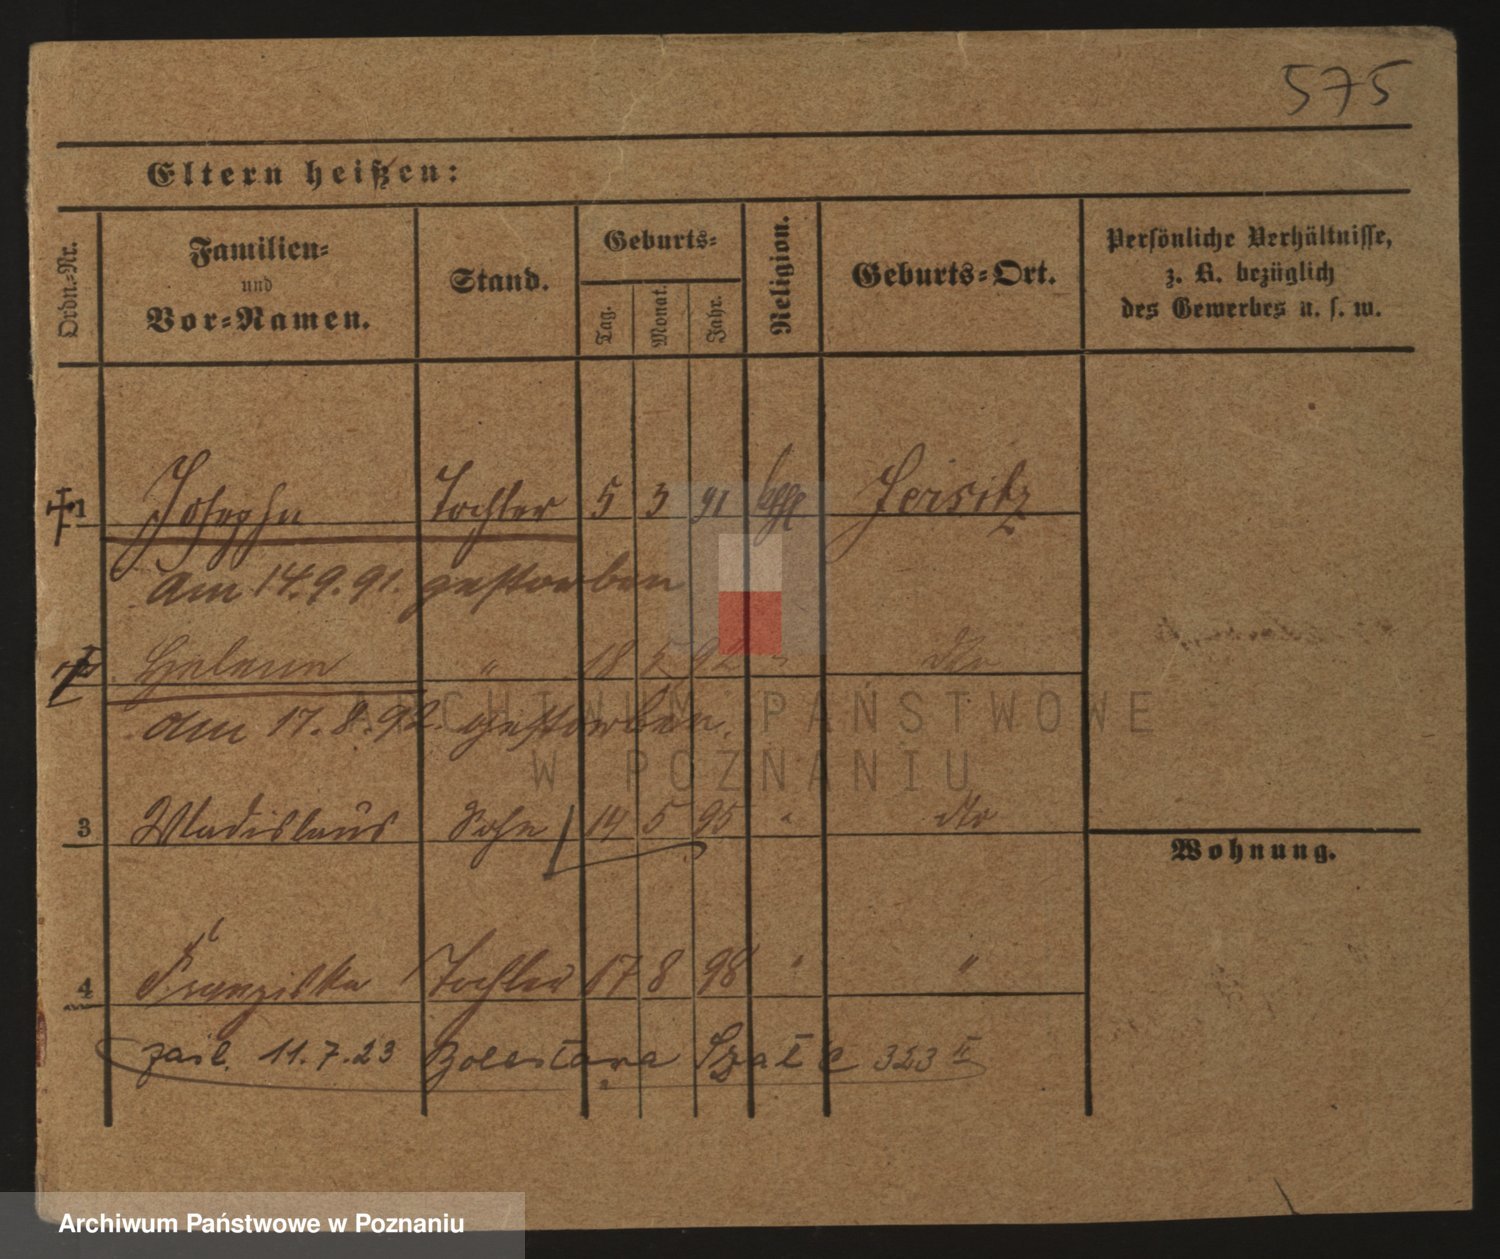 575
Eltern heißen:
Ordn.-Nr.
Familien-
und
Vor-Namen.
Stand.
Geburts-
Tag.
Monat.
Jahr.
Religion.
Geburts-Ort.
Persönliche Verhältnisse,
z. B. bezüglich
des Gewerbes u. s. w.
1 Josepha Tochter 5 3 91 Jersitz
am 14.9.91. gestorben
Helena " 18 5 92 " dto
am 17.8.92 gestorben.
3 Wladislaus Sohn 14 5 95 " dto
Wohnung.
4 Franziska Tochter 17 8 98 " "
11.7.23 Szał C 323 II
ARCHIWUM PAŃSTWOWE
W POZNANIU
Archiwum Państwowe w Poznaniu